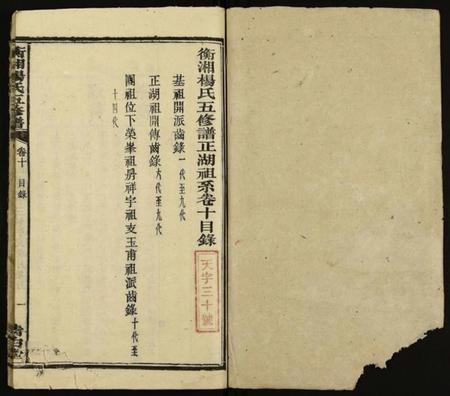 衡湘楊氏五修譜正湖祖系卷十目錄
天字三十號
基祖開派齒錄一代至九代
正湖祖開傳齒錄六代至九代
團祖位下榮峯祖房祥宇祖支玉甫祖派齒錄十代至
十四代
衡湘楊氏五修譜
卷十
目錄
一